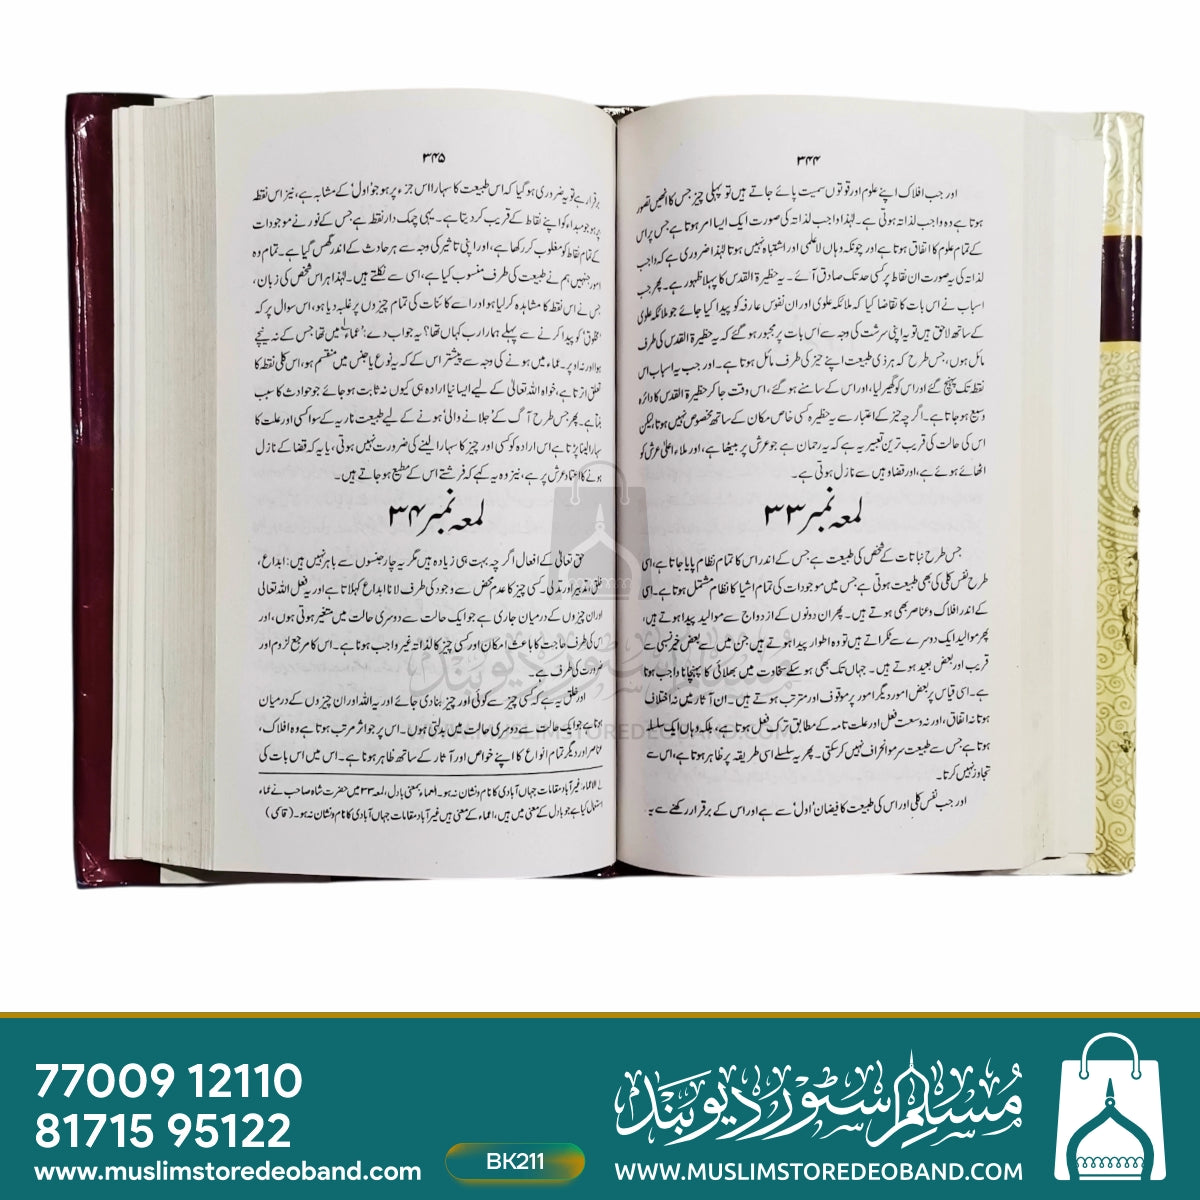 ۳۴۴
اور جب افلاک اپنے علوم اور قوتوں سمیت پائے جاتے ہیں تو پہلی چیز جس کا انھیں تصور
ہوتا ہے وہ واجب لذاتہ ہوتی ہے۔ لہٰذا واجب لذاتہ کی صورت ایک ایسا امر ہوتا ہے جس پر اس
کے تمام علوم کا اتفاق ہوتا ہے اور چونکہ وہاں لاعلمی اور اشتباہ نہیں ہوتا لہٰذا ضروری ہے کہ واجب
لذاتہ کی یہ صورت ان نقاط پر کسی حد تک صادق آئے۔ یہ حظیرۃ القدس کا پہلا ظہور ہے۔ پھر جب
اسباب نے اس بات کا تقاضا کیا کہ ملائکہ علوی اور ان نفوس عارفہ کو پیدا کیا جائے جو ملائکہ علوی
کے ساتھ لاحق ہیں تو یہ اپنی سرشت کی وجہ سے اس بات پر مجبور ہو گئے کہ یہ حظیرۃ القدس کی طرف
مائل ہوں، جس طرح کہ ہر ذی طبیعت اپنے حیز کی طرف مائل ہوتا ہے۔ اور جب یہ اسباب اس
نقطہ تک پہنچ گئے اور اس کو گھیر لیا، اور اس کے سامنے ہو گئے، اس وقت جا کر حظیرۃ القدس کا دائرہ
وسیع ہو جاتا ہے۔ اگرچہ حیز کے اعتبار سے یہ حظیرہ کسی خاص مکان کے ساتھ مخصوص نہیں ہوتا، لیکن
اس کی حالت کی قریب ترین تعبیر یہ ہے کہ یہ رحمان ہے جو عرش پر بیٹھا ہے، اور ملاء اعلیٰ عرش کو
اٹھائے ہوئے ہے، اور قضاء وہیں سے نازل ہوتی ہے۔
لمعہ نمبر ۳۳
جس طرح نباتات کے شخص کی طبیعت ہے جس کے اندر اس کا تمام نظام پایا جاتا ہے، اسی
طرح نفس کلی کی بھی طبیعت ہوتی ہے جس میں موجودات کی تمام اشیا کا نظام مشتمل ہوتا ہے۔ اسی
کے اندر افلاک و عناصر بھی ہوتے ہیں۔ پھر ان دونوں کے ازدواج سے موالید پیدا ہوتے ہیں،
پھر موالید ایک دوسرے سے ٹکراتے ہیں تو وہ اطوار پیدا ہوتے ہیں جن میں سے بعض خیر نسبی سے
قریب اور بعض بعید ہوتے ہیں۔ جہاں تک بھی ہو سکے سخاوت میں بھلائی کا پہنچانا واجب ہوتا
ہے۔ اسی قیاس پر بعض امور دیگر امور پر موقوف اور مترتب ہوتے ہیں۔ ان آثار میں نہ اختلاف
ہوتا نہ اتفاق، اور نہ وسعت فعل اور علت تامہ کے مطابق ترک فعل ہوتا ہے، بلکہ وہاں ایک سلسلہ
ہوتا ہے جس سے طبیعت سرمو انحراف نہیں کر سکتی۔ پھر یہ سلسلے اسی طریقہ پر ظاہر ہوتا ہے، اس سے
تجاوز نہیں کرتا۔
اور جب نفس کلی اور اس کی طبیعت کا فیضان 'اول' سے ہے اور اس کے برقرار رکھنے سے یہ
۳۴۵
برقرار ہے تو یہ ضروری ہو گیا کہ اس طبیعت کا سہارا اس جزء پر ہو جو 'اول' کے مشابہ ہے، نیز اس نقطہ
پر ہو جو مبداء کو اپنے نقاط کے قریب کر دیتا ہے۔ یہی چمک دار نقطہ ہے جس کے نور نے موجودات
کے تمام نقاط کو مغلوب کر رکھا ہے، اور اپنی تاثیر کی وجہ سے ہر حادث کے اندر گھس گیا ہے۔ تمام وہ
امور جنہیں ہم نے طبیعت کی طرف منسوب کیا ہے، اسی سے نکلتے ہیں۔ لہٰذا ہر اس شخص کی زبان،
جس نے اس نقطہ کا مشاہدہ کر لیا ہو اور اسے کائنات کی تمام چیزوں پر غلبہ دیا ہو، اس سوال پر کہ
'مخلوق' کو پیدا کرنے سے پہلے ہمارا رب کہاں تھا؟ یہ جواب دے: 'عماء' میں تھا جس کے نہ نیچے
ہوا اور نہ اوپر۔ عماء میں ہونے کی وجہ سے پیشتر اس کے کہ یہ نوع یا جنس میں منقسم ہو، اس کلی نقطہ کا
تعلق اترتا ہے، خواہ اللہ تعالیٰ کے لیے ایسا نیا ارادہ ہی کیوں نہ ثابت ہو جائے جو حوادث کا سبب
بنتا ہے۔ پھر جس طرح آگ کے 'جلانے والی' ہونے کے لیے طبیعت ناریہ کے سوا کسی اور علت کا
سہارا لینا پڑتا ہے اس ارادہ کو کسی اور چیز کا سہارا لینے کی ضرورت نہیں ہوتی، یا یہ کہ قضا کے نازل
ہونے کا اعتماد عرش پر ہے، نیز وہ یہ کہے کہ فرشتے اس کے مطیع ہو جاتے ہیں۔
لمعہ نمبر ۳۴
حق تعالیٰ کے افعال اگرچہ بہت ہی زیادہ ہیں مگر یہ چار جنسوں سے باہر نہیں ہیں: ابداع،
خلق، تدبیر اور تدلی۔ کسی چیز کا عدم محض سے وجود کی طرف لانا ابداع کہلاتا ہے اور یہ فعل اللہ تعالیٰ
اور ان چیزوں کے درمیان جاری ہے جو ایک حالت سے دوسری حالت میں متغیر ہوتی ہوں، اور
اس کی طرف حاجت کا باعث امکان اور کسی چیز کا لذاتہ غیر واجب ہونا ہے۔ اس کا مرجع لزوم اور
ضرورت کی طرف ہے۔
اور خلق یہ ہے کہ کسی چیز سے کوئی اور چیز بنا دی جائے اور یہ اللہ اور ان چیزوں کے درمیان
ہوتا ہے جو ایک حالت سے دوسری حالت میں بدلتی ہوں۔ اس پر جو اثر مرتب ہوتا ہے وہ افلاک،
عناصر اور دیگر تمام انواع کا اپنے خواص اور آثار کے ساتھ ظاہر ہونا ہے۔ اس میں اس بات کی
لے الاعماء، غیر آباد مقامات جہاں آبادی کا نام و نشان نہ ہو۔ العماء بمعنی بادل، لمعہ ۳۳ میں حضرت شاہ صاحب نے عماء
استعمال کیا ہے جو بادل کے معنی میں ہیں، اعماء کے معنی ہیں غیر آباد مقامات جہاں آبادی کا نام و نشان نہ ہو۔ (قاسمی)
مسلم سٹور دیوبند
WWW.MUSLIMSTOREDEOBAND.COM
77009 12110
81715 95122
www.muslimstoredeoband.com
BK211
مسلم سٹور دیوبند
WWW.MUSLIMSTOREDEOBAND.COM